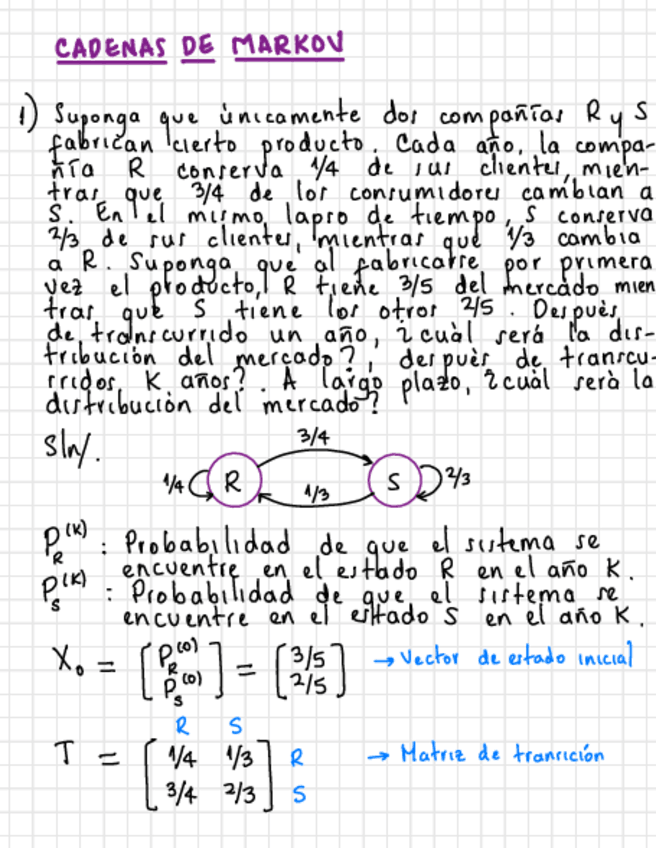 CADENAS DE MARKOV
1) Suponga que ùnicamente dos compañías R y S
fabrican cierto producto. Cada año, la compa-
ñía R conserva 1/4 de sus clientes, mien-
tras que 3/4 de los consumidores cambian a
S. En el mismo lapso de tiempo, S conserva
2/3 de sus clientes, mientras que 1/3 cambia
a R. Suponga que al fabricarse por primera
vez el producto, R tiene 3/5 del mercado mien
tras que S tiene los otros 2/5. Despuès
de transcurrido un año, ¿cuàl serà la dis-
tribución del mercado?, despuès de transcu-
rridos K años?. A largo plazo, ¿cuàl serà la
distribución del mercado?
Sln/.
3/4
1/4 R S 2/3
1/3
P_R^(K) : Probabilidad de que el sistema se
encuentre en el estado R en el año K.
P_S^(K) : Probabilidad de que el sistema se
encuentre en el estado S en el año K.
X₀ = [P_R^(0) P_S^(0)] = [3/5 2/5] → Vector de estado inicial
R S
T = [1/4 1/3 R → Matriz de transición
3/4 2/3] S